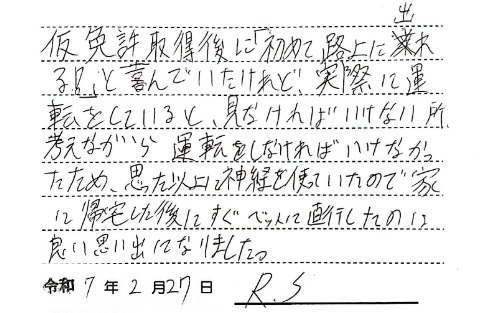 仮免許取得後に「初めて路上に出れ
る!?」と喜んでいたけれど、実際に運
転をしていると、見なければいけない所、
考えながら 運転をしなければいけなかっ
たため、思った以上に神経を使っていたので家
に帰宅した後にすぐベットに直行したのは
良い思い出になりました。
令和 7 年 2 月 27 日 R.S